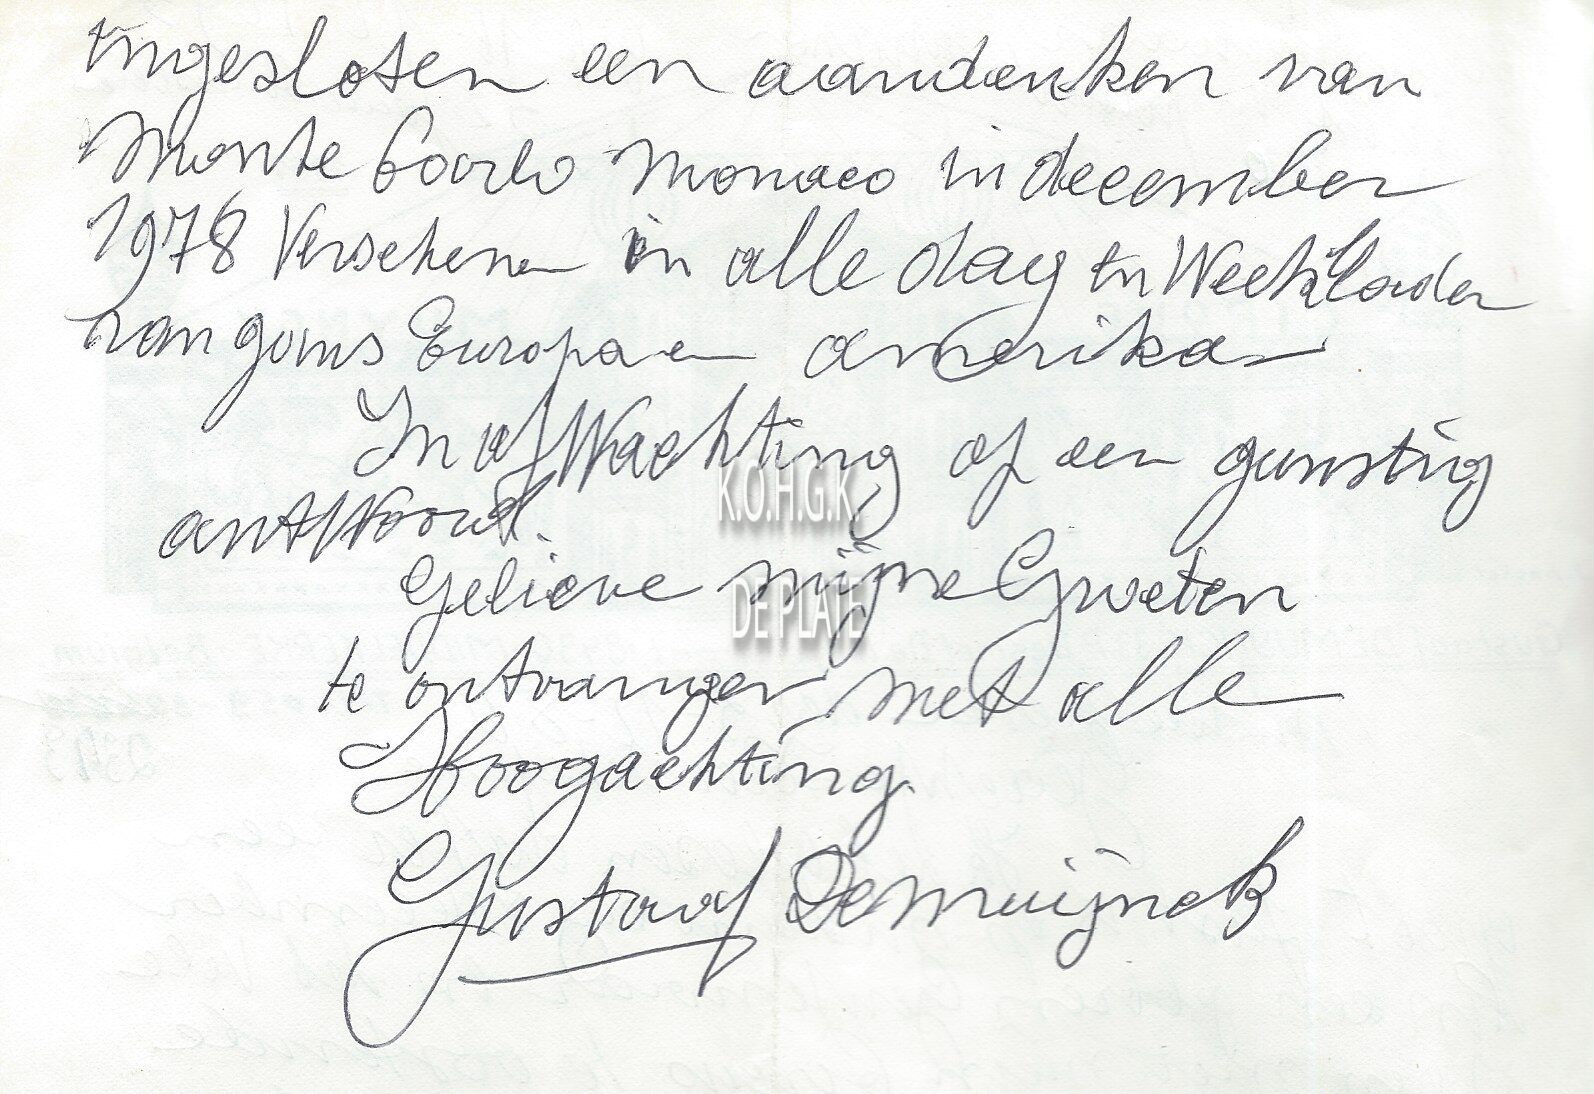 ingesloten een aandenken van
Monte Carlo Monaco in december
1978 Verschenen in alle dag en Weekbladen
van gans Europa en amerika
In afWachting op een gunstig
antWoord.
Gelieve mijne Groeten
te ontvangen met alle
Hoogachting.
Gustaaf Demuijnck
K.O.H.G.K.
DE PLATE